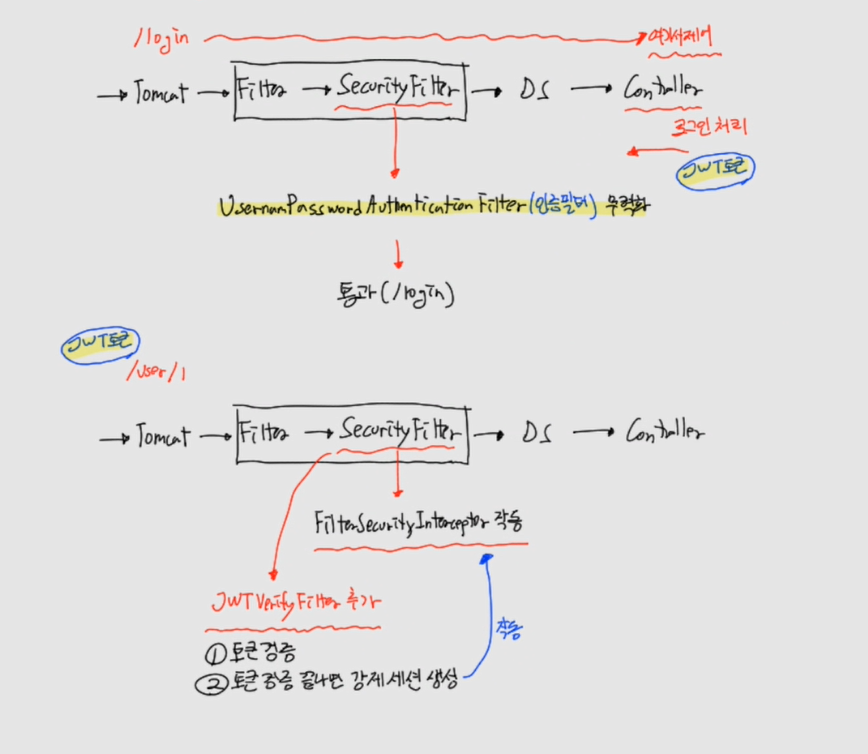 /login
여기서제어
Tomcat
Filter
SecurityFilter
DS
Controller
로그인 처리
JWT토큰
UsernamPasswordAuthenticationFilter(인증필터) 무력화
통과(/login)
JWT토큰
/user/1
Tomcat
Filter
SecurityFilter
DS
Controller
FilterSecurityInterceptor 작동
JWTVerifyFilter 추가
① 토큰검증
작동
② 토큰 검증 끝나면 강제 세션 생성